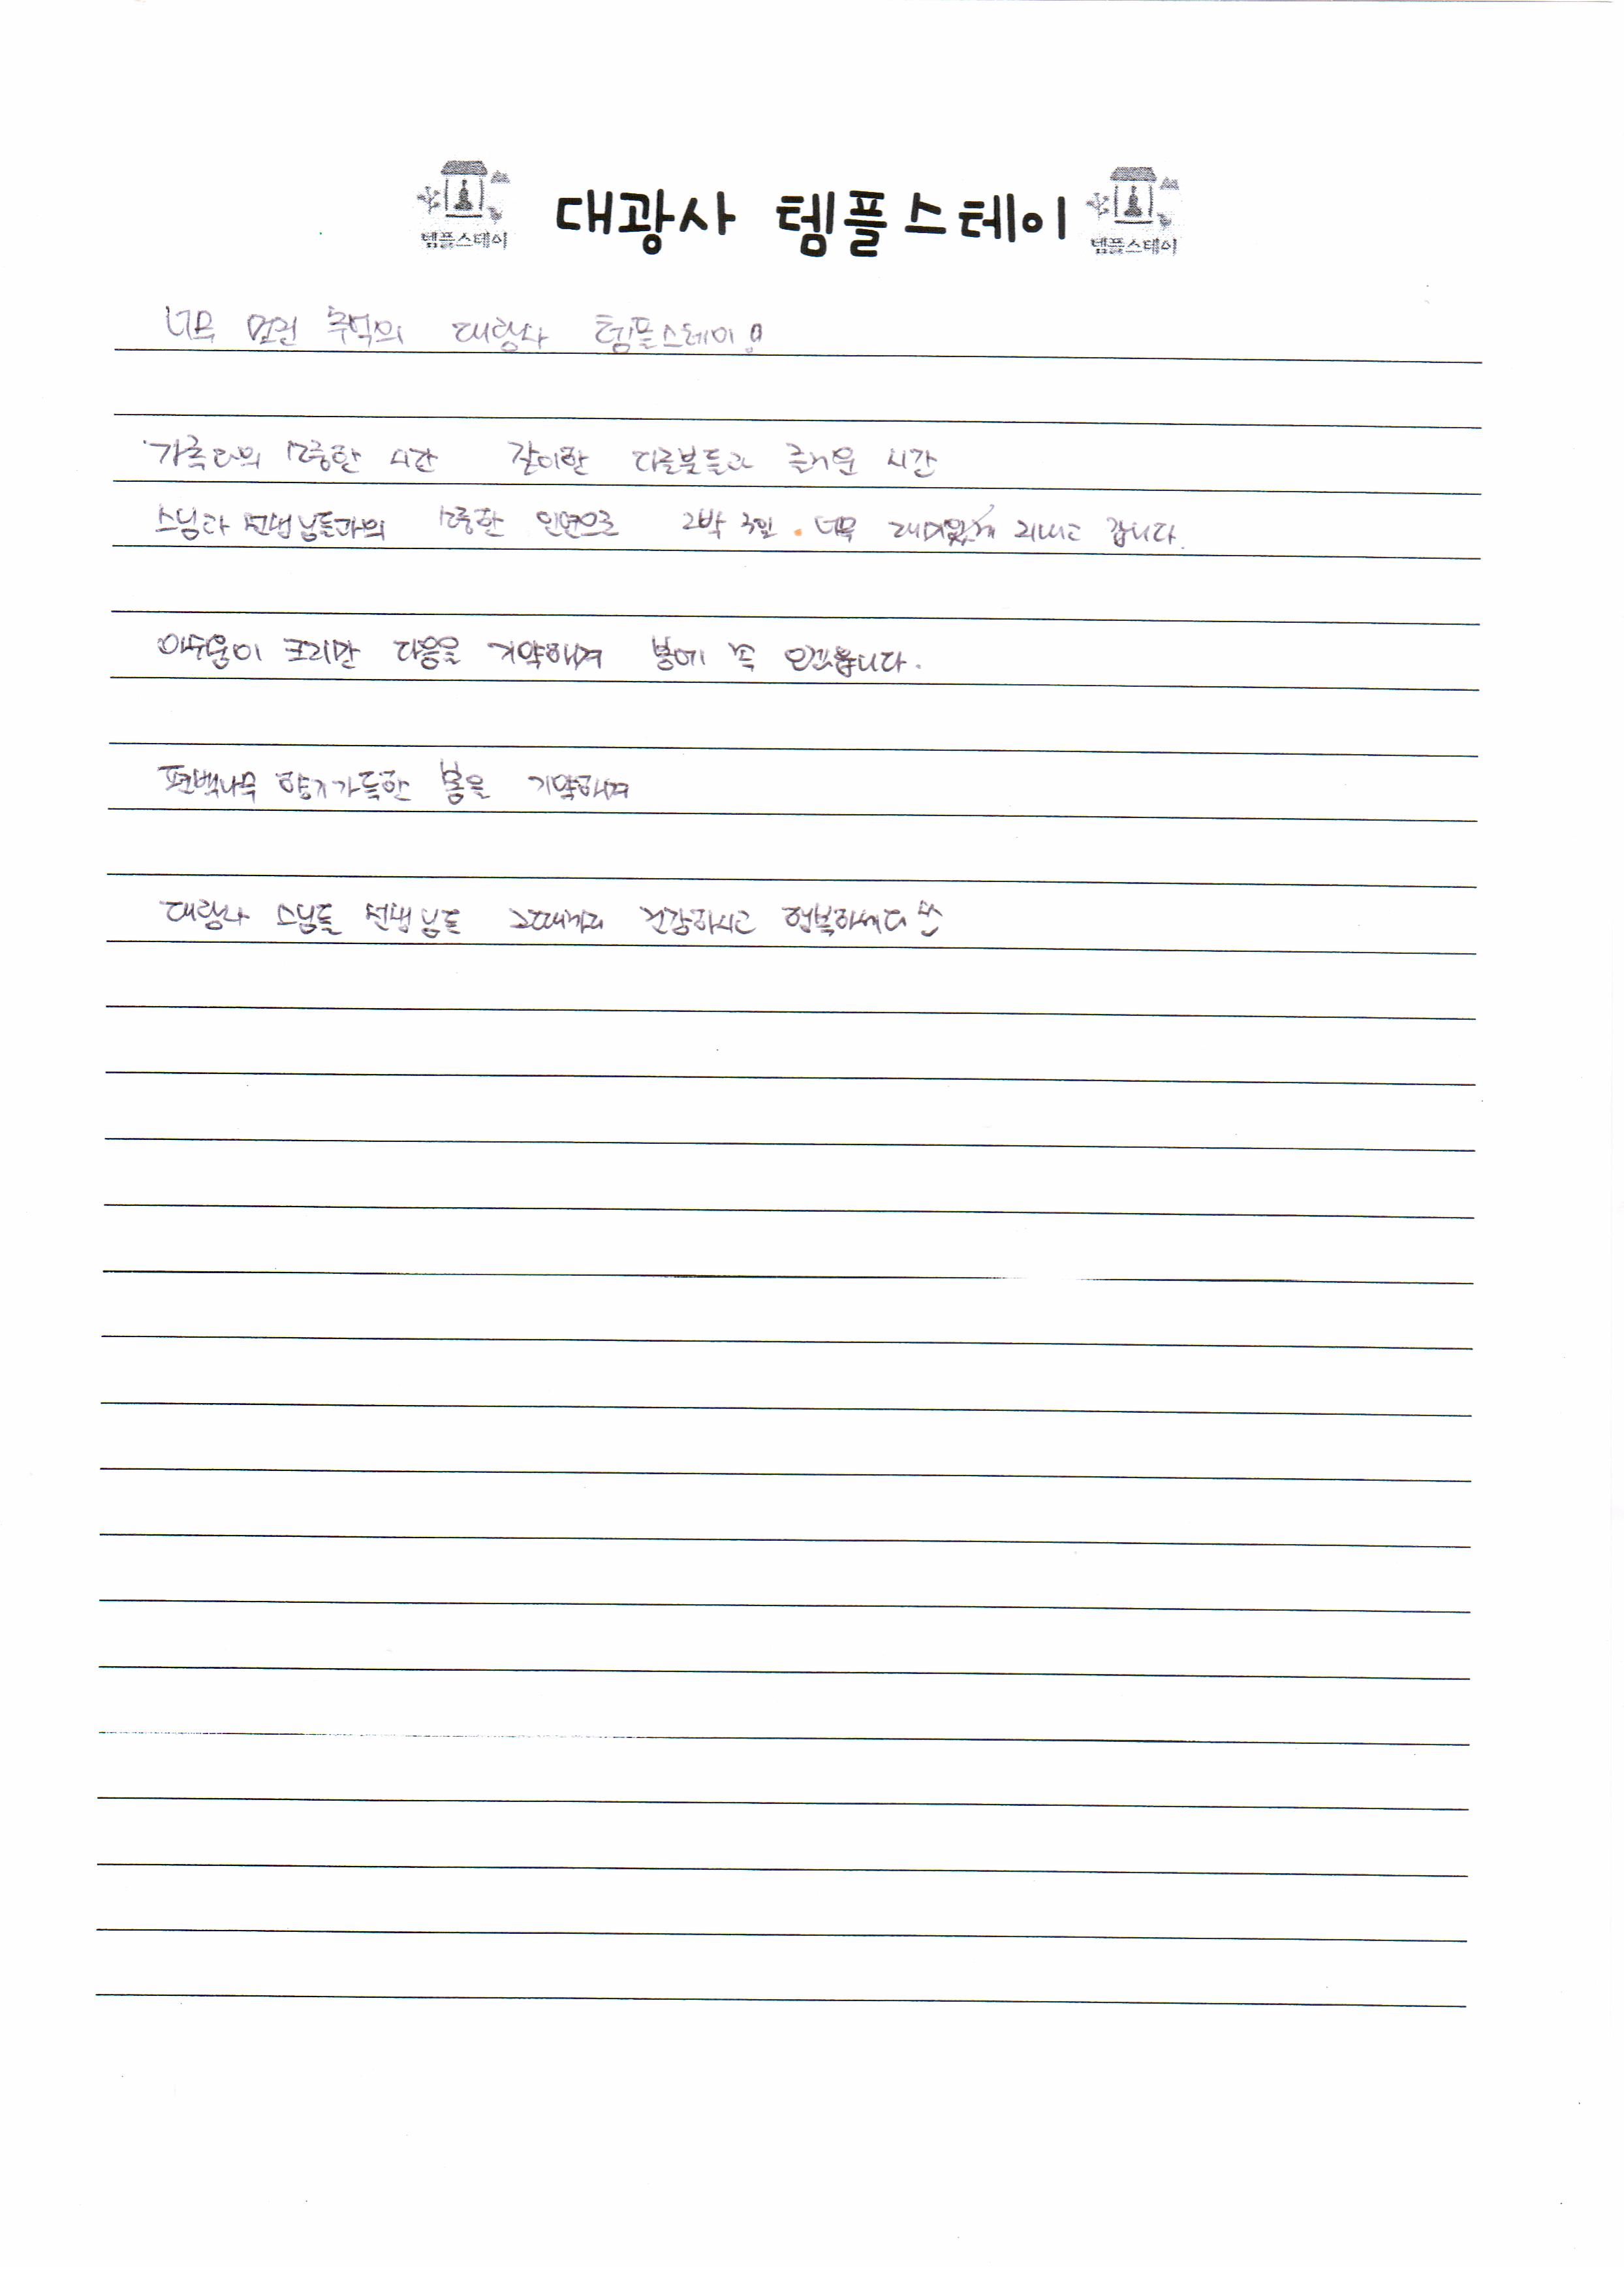 템플스테이 대광사 템플스테이 템플스테이
너무 멋진 추억의 대광사 템플스테이!
가족과의 소중한 시간 같이한 다른분들과 즐거운 시간
스님과 선생님들과의 소중한 인연으로 2박 3일. 너무 재미있게 지내고 갑니다.
아쉬움이 크지만 다음을 기약하며 봄에 꼭 오겠습니다.
편백나무 향기가득한 봄을 기약하며
대광사 스님들 선생님들 그때까지 건강하시고 행복하세요